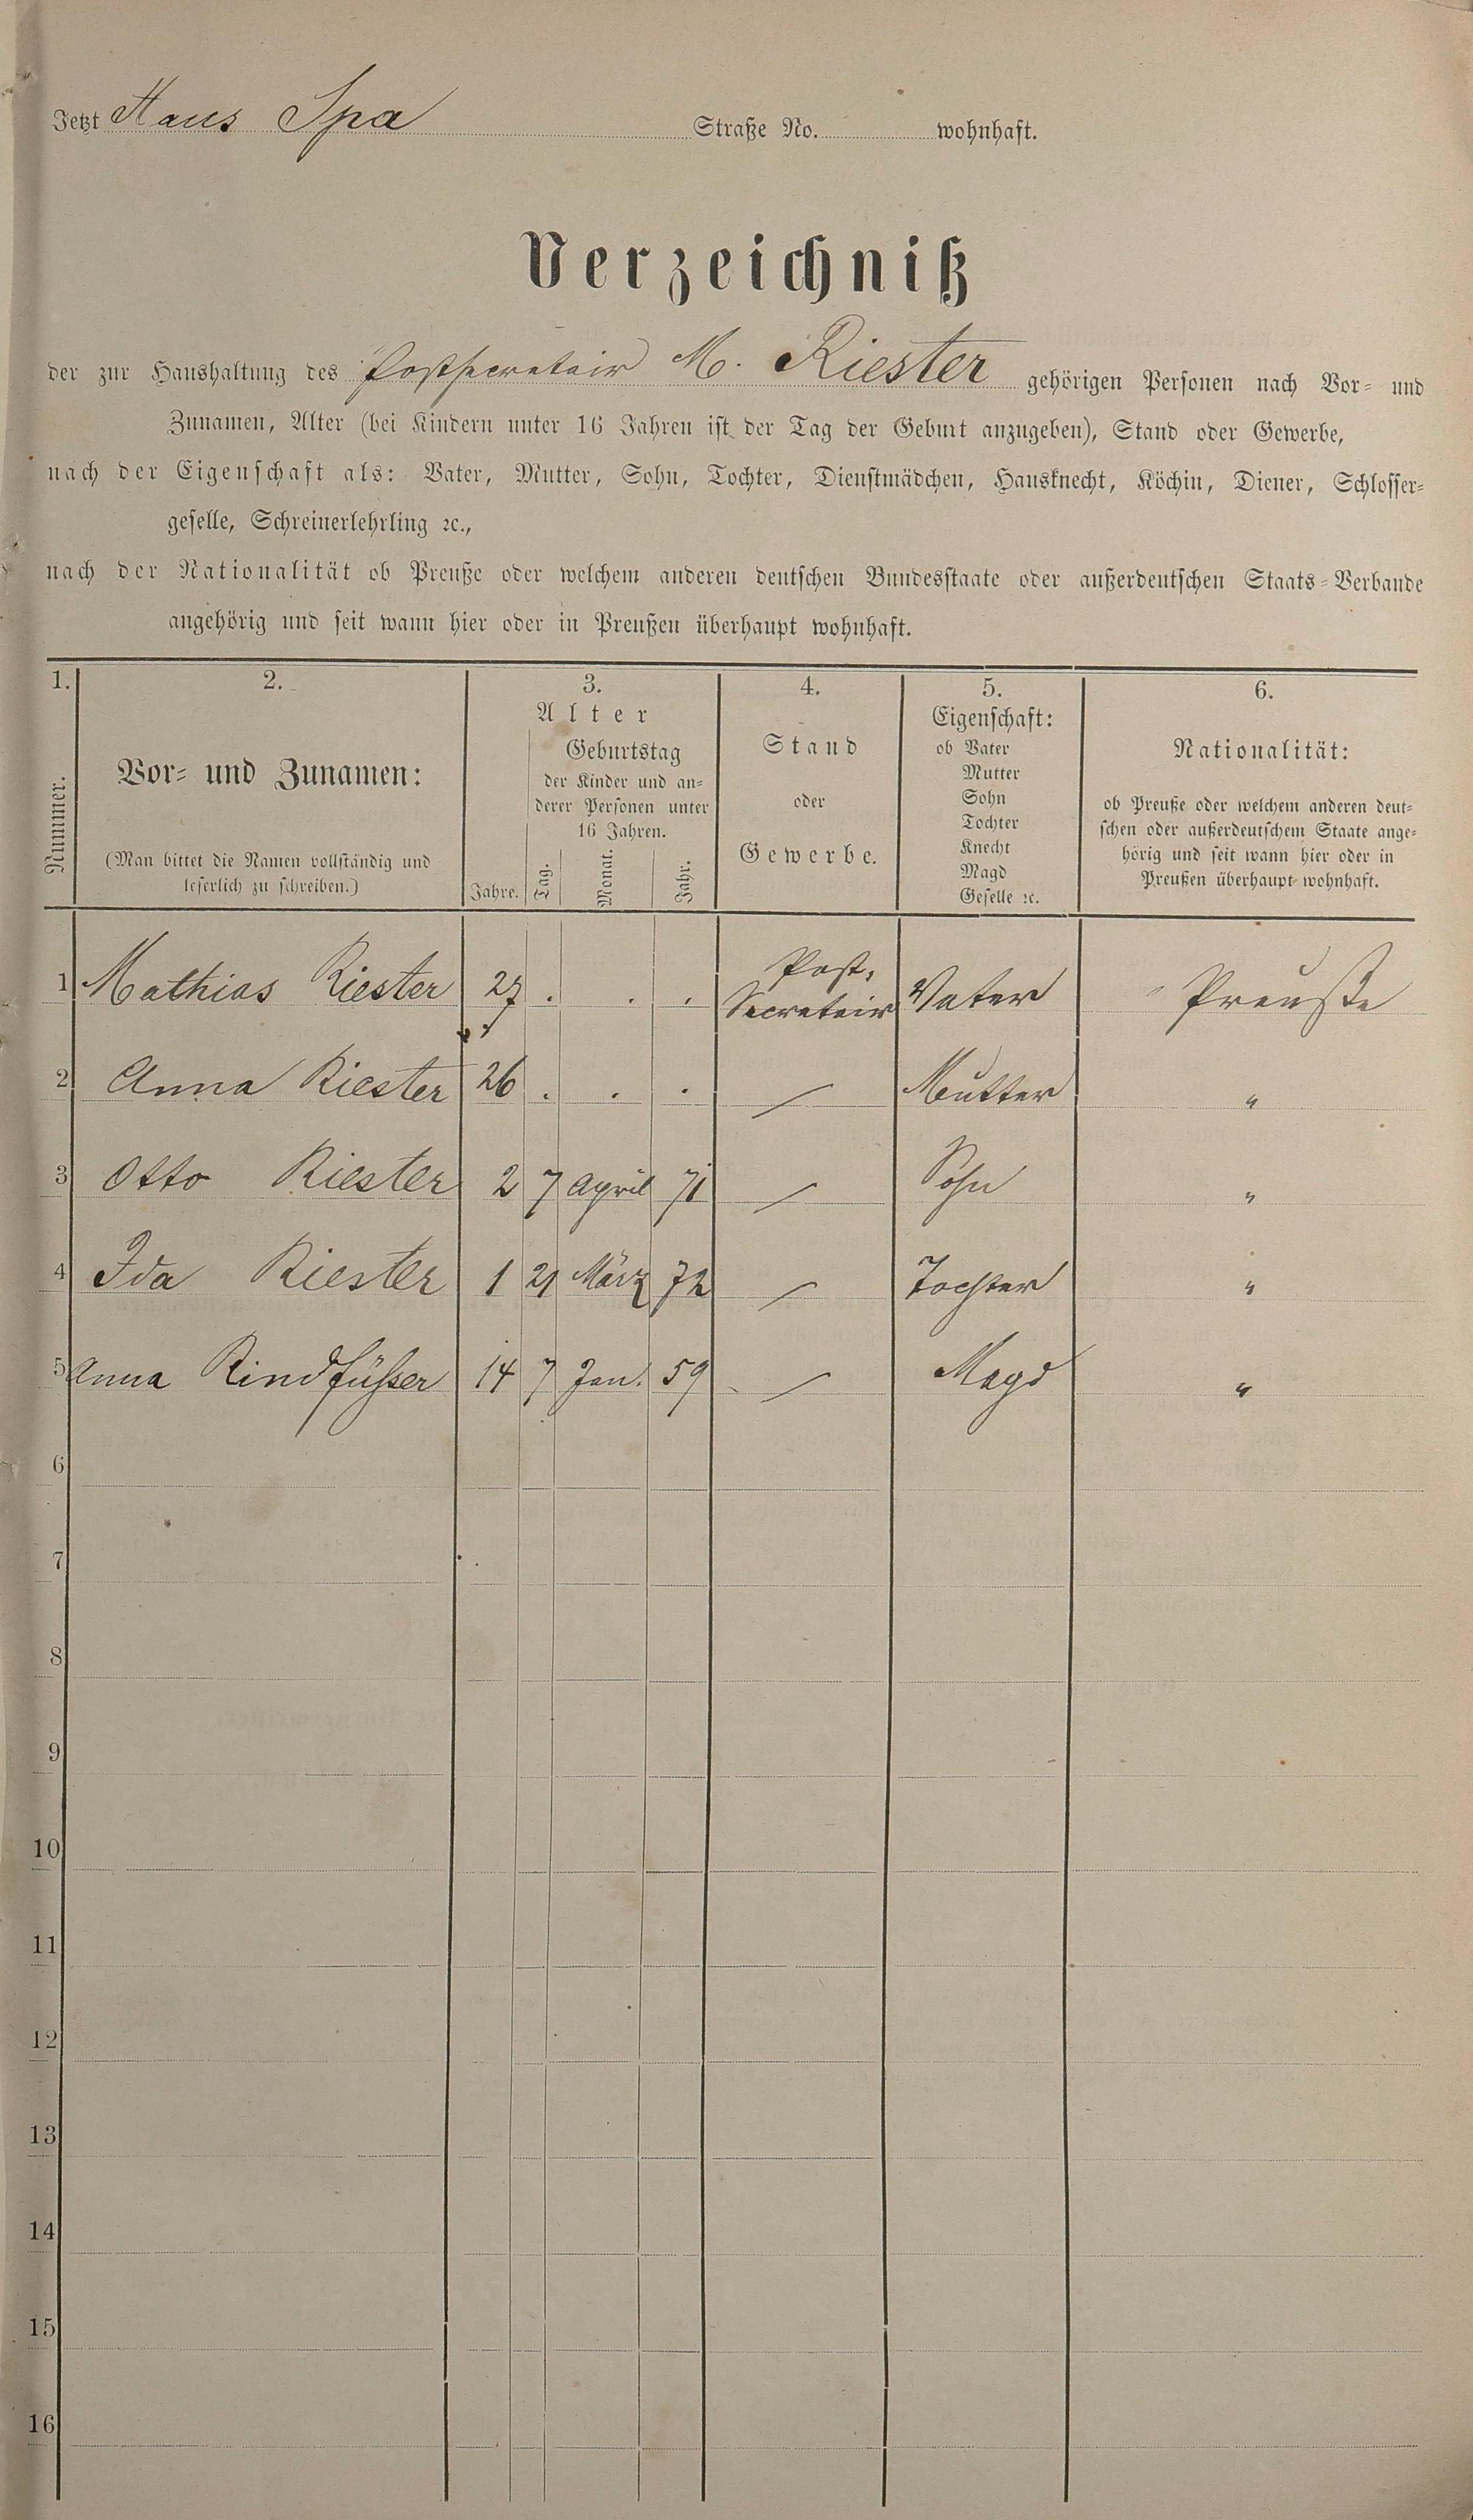 Jetzt Haus Spa Straße No. wohnhaft.
Verzeichniß
der zur Haushaltung des Postsecretair M. Riester gehörigen Personen nach Vor- und
Zunamen, Alter (bei Kindern unter 16 Jahren ist der Tag der Geburt anzugeben), Stand oder Gewerbe,
nach der Eigenschaft als: Vater, Mutter, Sohn, Tochter, Dienstmädchen, Hausknecht, Köchin, Diener, Schlosser-
geselle, Schreinerlehrling ꝛc.,
nach der Nationalität ob Preuße oder welchem anderen deutschen Bundesstaate oder außerdeutschen Staats-Verbande
angehörig und seit wann hier oder in Preußen überhaupt wohnhaft.
1.
Nummer.
2.
Vor- und Zunamen:
(Man bittet die Namen vollständig und
leserlich zu schreiben.)
3.
Alter
Jahre.
Geburtstag
der Kinder und an-
derer Personen unter
16 Jahren.
Tag. Monat. Jahr.
4.
Stand
oder
Gewerbe.
5.
Eigenschaft:
ob Vater
Mutter
Sohn
Tochter
Knecht
Magd
Geselle ꝛc.
6.
Nationalität:
ob Preuße oder welchem anderen deut-
schen oder außerdeutschem Staate ange-
hörig und seit wann hier oder in
Preußen überhaupt wohnhaft.
1 Mathias Riester 27 . . . Post-
Secretair Vater Preuße
2 Anna Riester 26 . . . — Mutter "
3 Otto Riester 2 7 April 71 — Sohn "
4 Ida Riester 1 21 März 72 — Tochter "
5 Anna Rindfüßer 14 7 Jan. 59 — Magd "
6
7
8
9
10
11
12
13
14
15
16